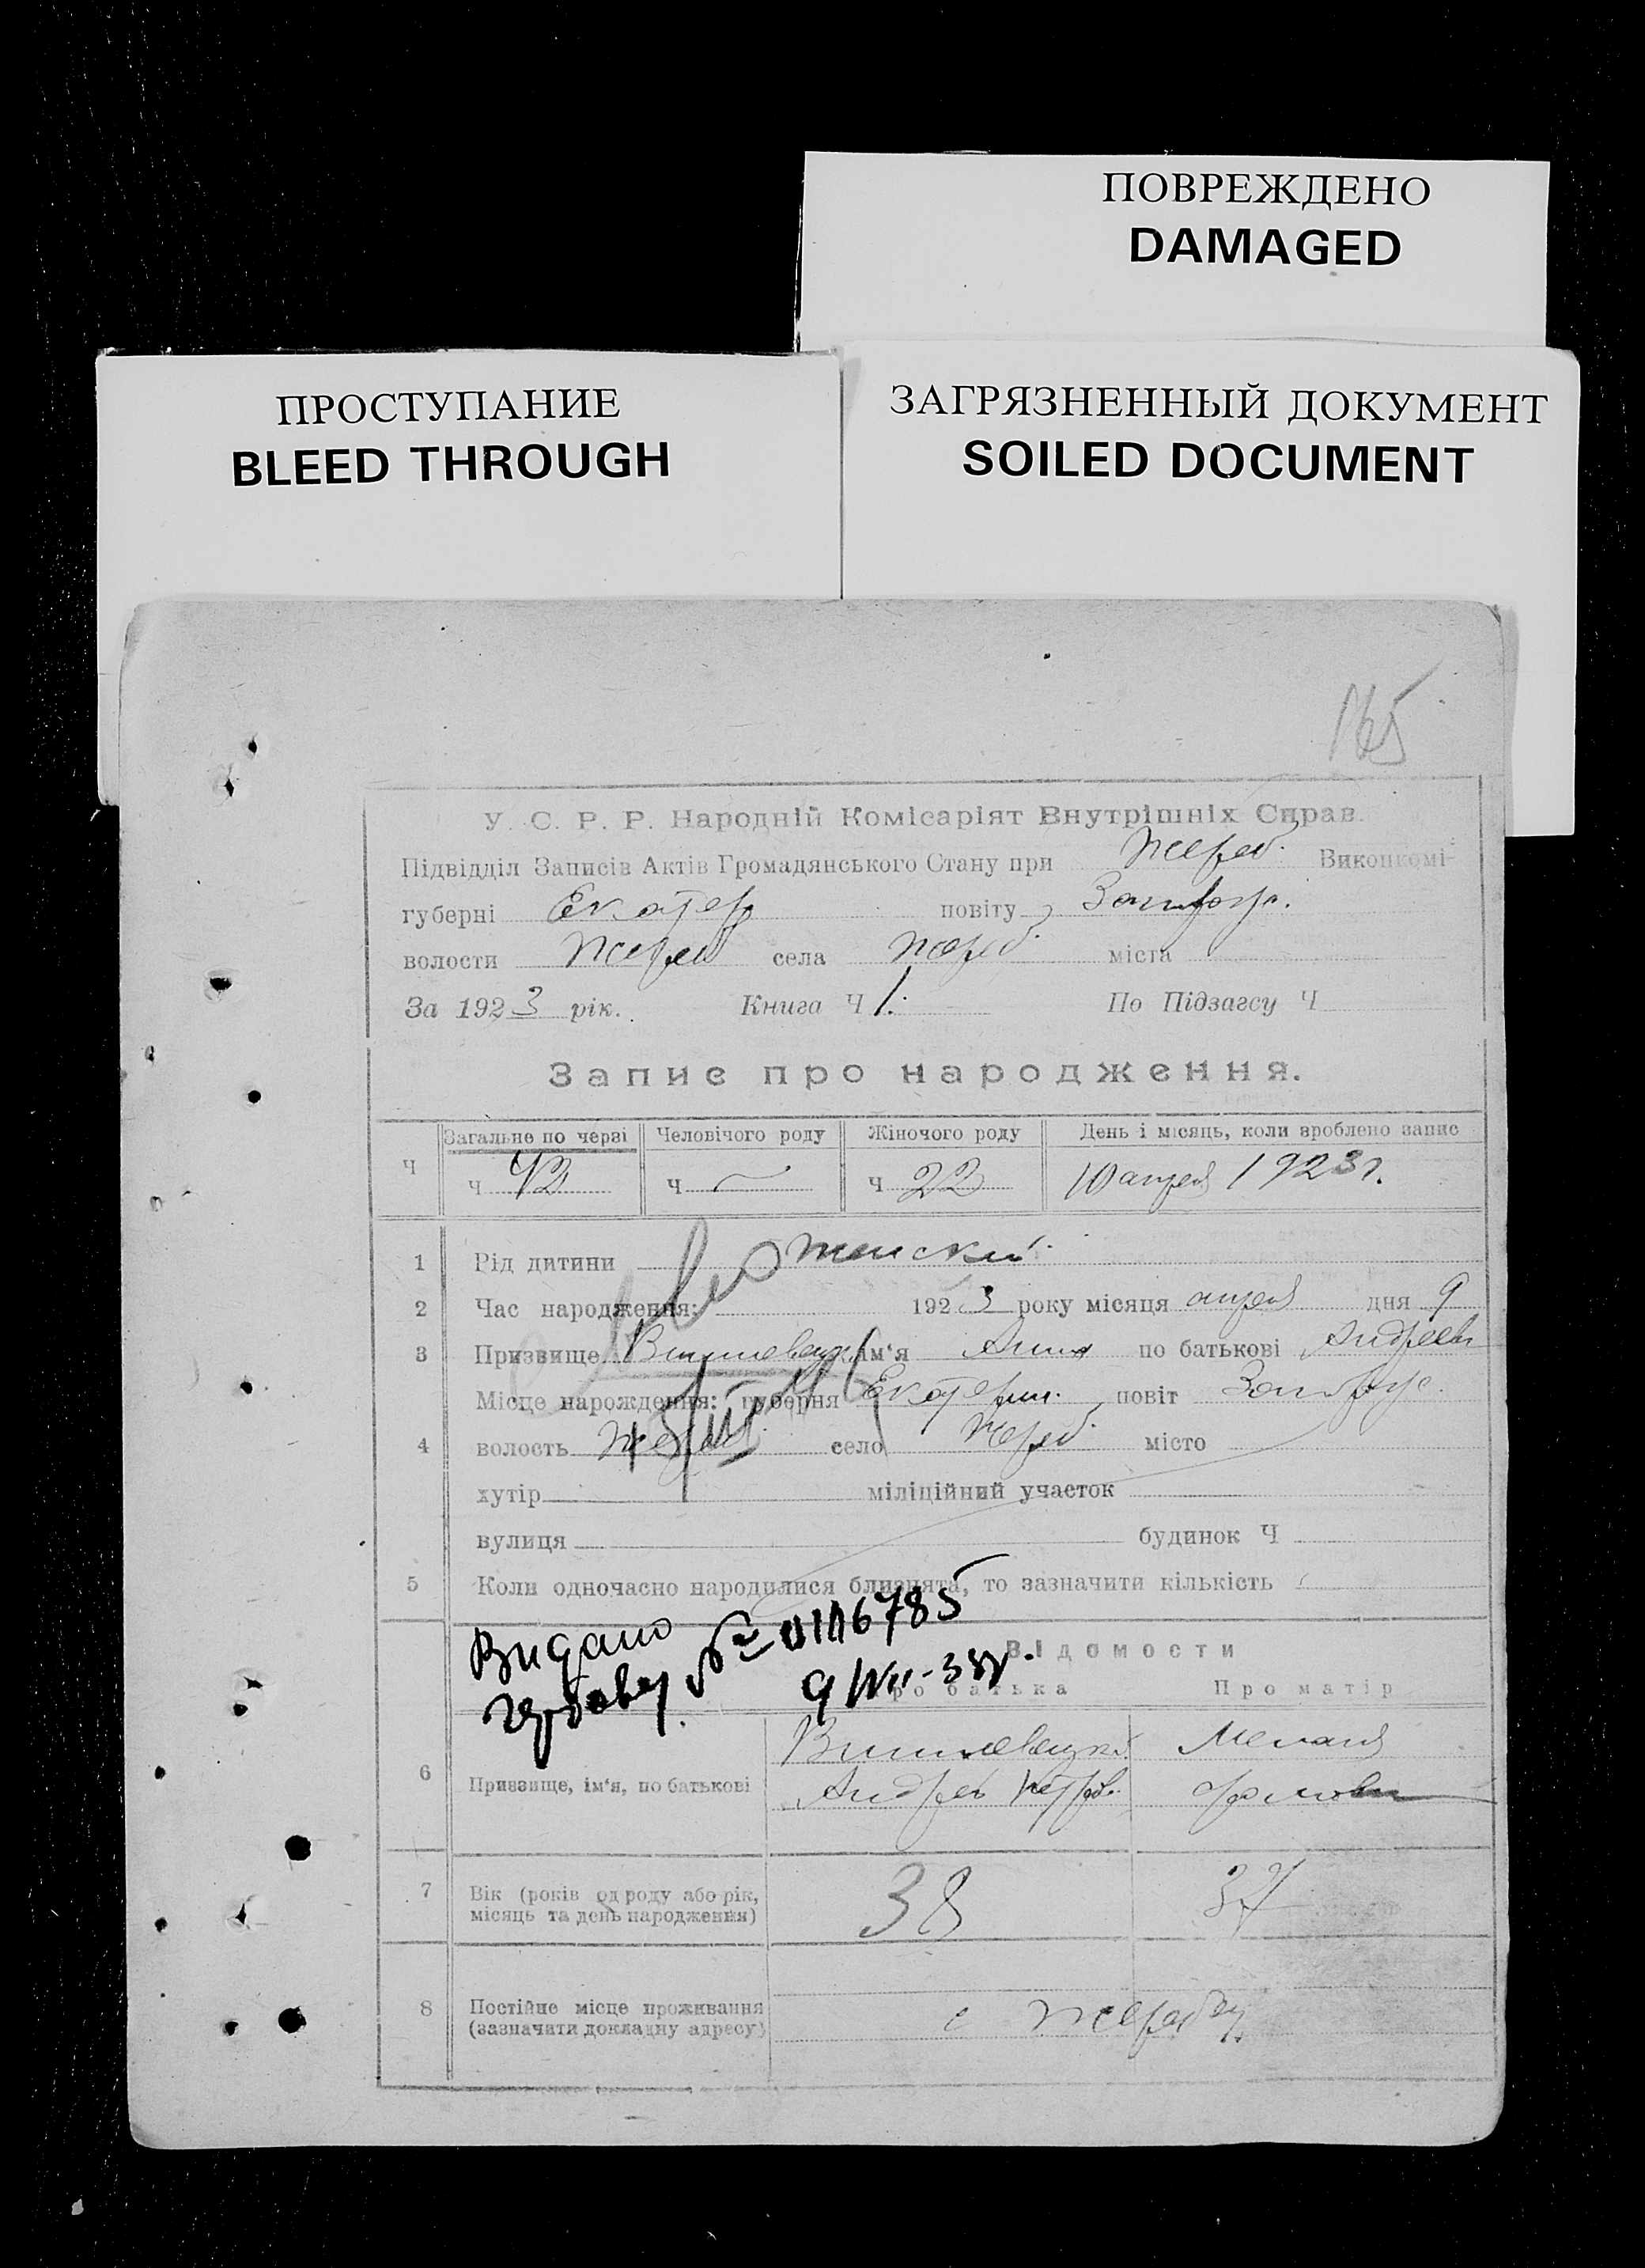 ПОВРЕЖДЕНО
DAMAGED
ПРОСТУПАНИЕ
BLEED THROUGH
ЗАГРЯЗНЕННЫЙ ДОКУМЕНТ
SOILED DOCUMENT
165
У. С. Р. Р. Народній Комісаріят Внутрішніх Справ.
Підвідділ Записів Актів Громадянського Стану при Жереб. Виконкомі
губерні Екатер повіту Запорож.
волости Жереб села Жереб. міста
За 1923 рік. Книга Ч 1. По Підзагсу Ч
Запис про народження.
Ч Загальне по черзі Человічого роду Жіночого роду День і місяць, коли зроблено запис
Ч 42 Ч — Ч 22 10 апреля 1923 г.
1 Рід дитини женский
2 Час народження: 1923 року місяця апреля дня 9
3 Призвище Вишневецк. ім'я Анна по батькові Андреевн
Місце народження: губерня Екатерин. повіт Запорож.
4 волость Жереб. село Жереб. місто
хутір міліційний участок
вулиця будинок Ч
5 Коли одночасно народилися близнята, то зазначити кількість
Видано №
Відомости
Про батька Про матір
Вишневецкий Мелания
6 Призвище, ім'я, по батькові Андрей Петров.
7 Вік (років од роду або рік, місяць та день народження) 38 37
8 Постійне місце проживання
(зазначити докладну адресу) с Жеребец